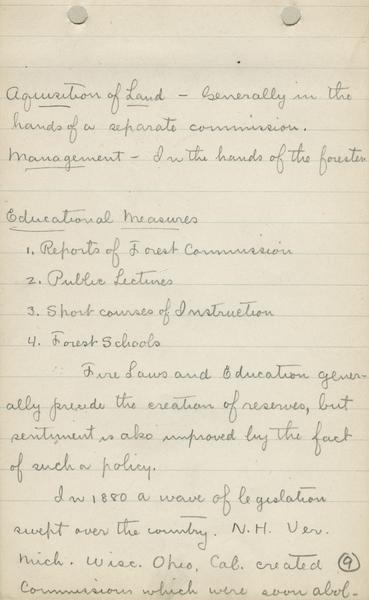 Aquisition of Land - Generally in the
hands of a separate commission.
Management - In the hands of the forester
Educational Measures
1. Reports of Forest Commission
2. Public Lectures
3. Short courses of Instruction
4. Forest Schools
Fire Laws and Education gener-
ally precede the creation of reserves, but
sentiment is also improved by the fact
of such a policy.
In 1880 a wave of legislation
swept over the country. N.H. Ver.
Mich. Wisc. Ohio, Cal. created
9
Commissions which were soon abol-